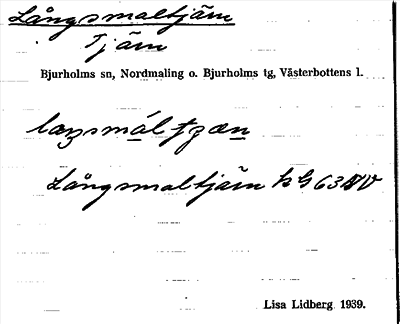 Långsmaltjärn
Tjärn
Bjurholms sn, Nordmaling o. Bjurholms tg, Västerbottens l.
Långsmaltjärn kG 63
Lisa Lidberg 1939.